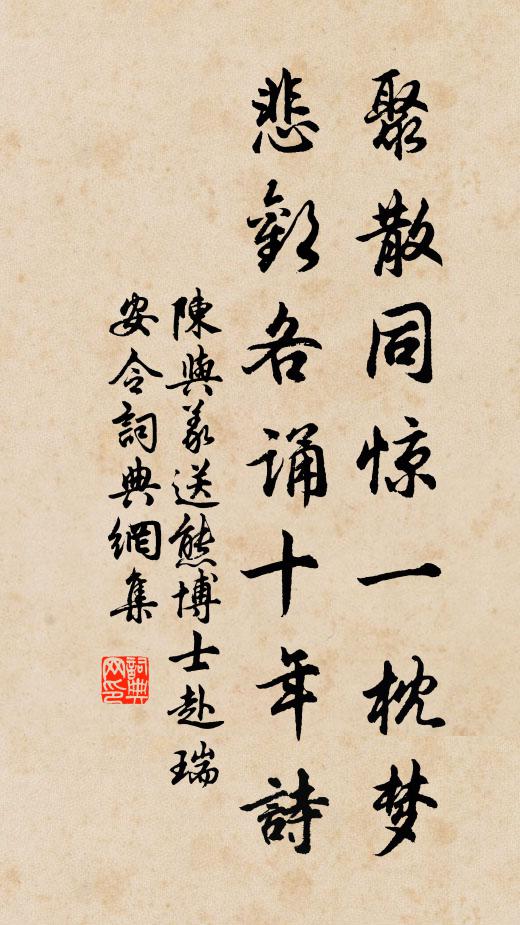 聚散同惊一枕梦
悲歡各诵十年詩
陳與義送熊博士赴瑞
安令詞典網集
詞典
网印